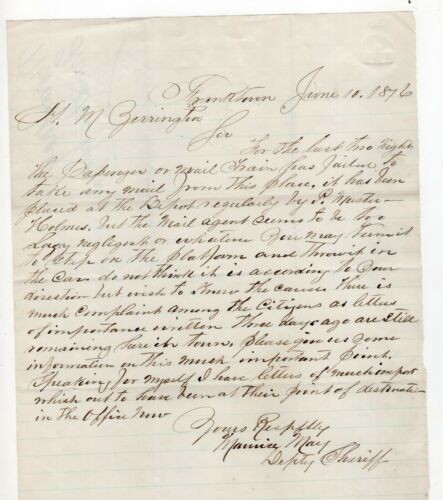 Franktown June 10. 1876
H. M Yerrington
Sir
For the last two nights
the Passenger or mail Train has failed to
take any mail from this place, it has been
placed at the Depot regularly by P. Master
Holmes. but the Mail agent seems to be too
Lazy negligent or whatever you may turm it
to step on the platform and throw it in
the Car. do not think it is according to your
direction but wish to know the cause there is
much complaint among the Citizens as letters
of importance written three days ago are still
remaining here in town. please give us some
information on this much important point.
Speaking for myself I have letters of much import
which out to have been at their point of destination
in the Office now
Yours Respflly
Maurice May
Depty Sheriff